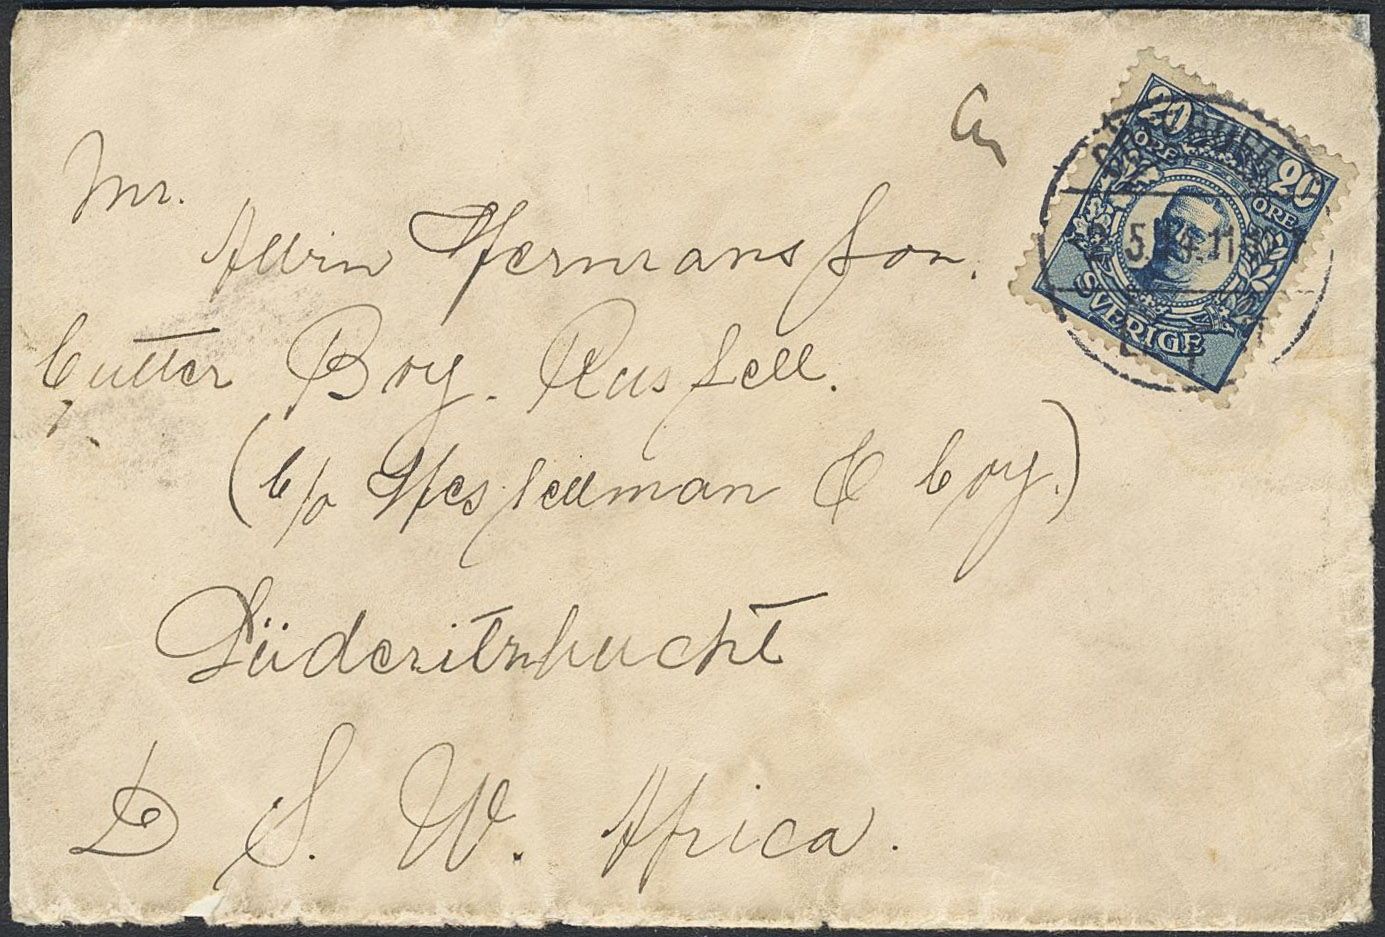 Mr.
Hermansson.
Cutter Boy. Russell.
(C/o Hesselman & Coy.)
Lüderitzbucht
D S. W. Africa.
20 20
ÖRE ÖRE
SVERIGE